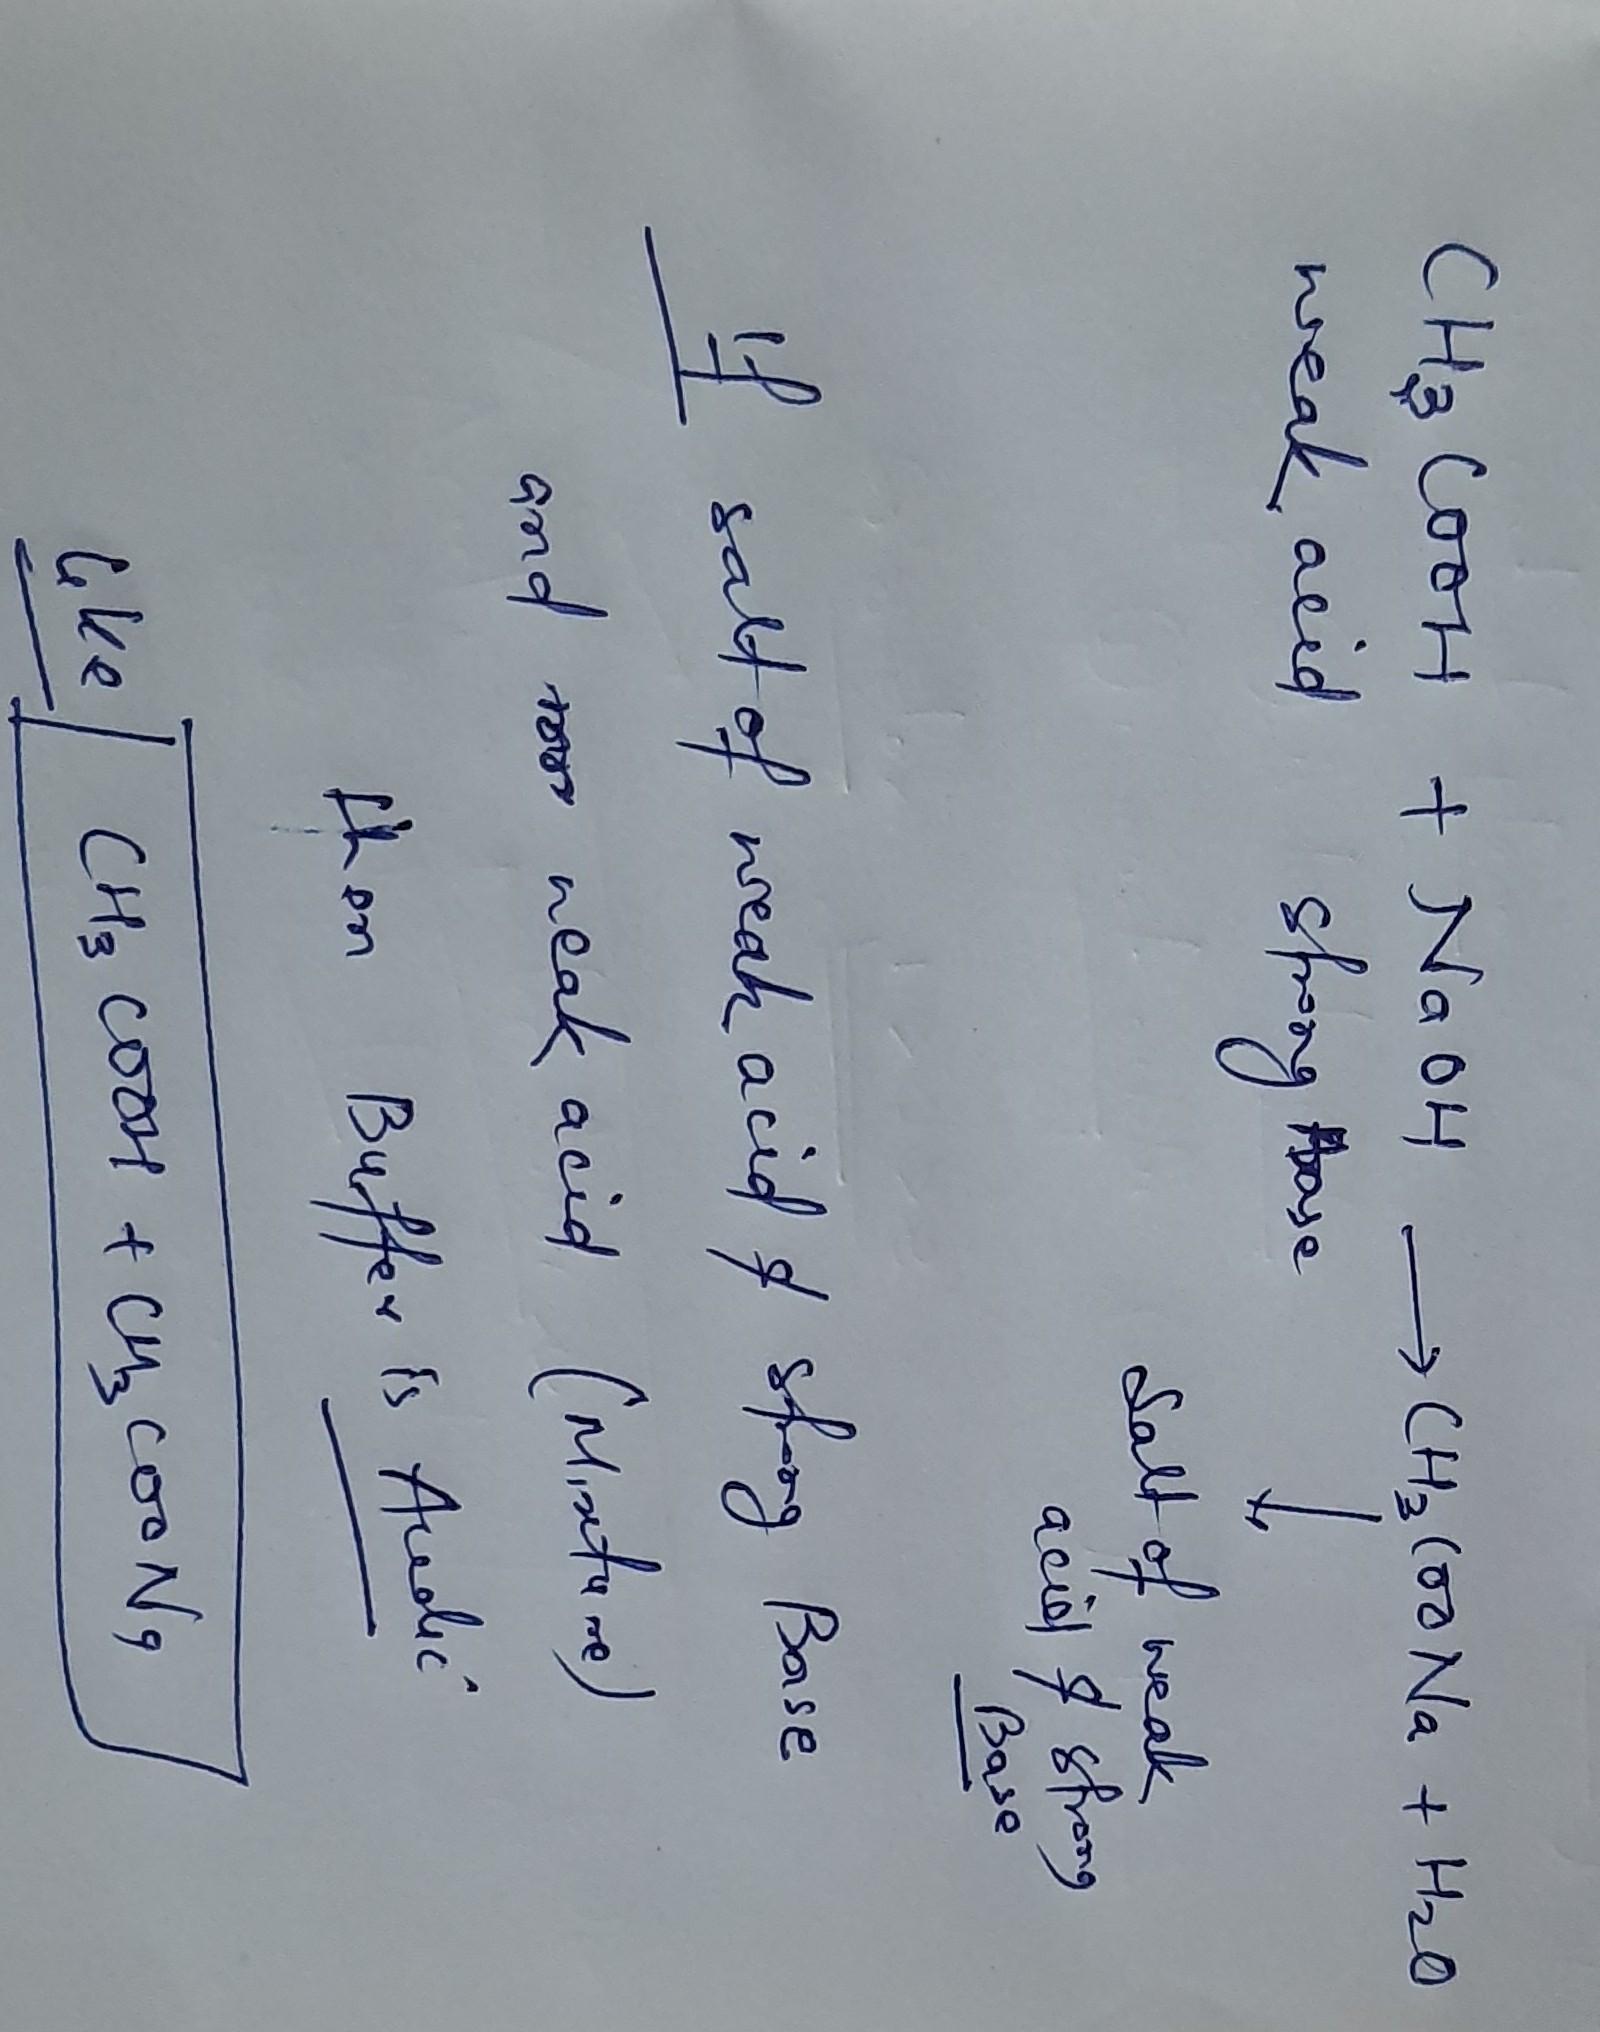 CH3COOH + NaOH → CH3COONa + H2O
weak acid strong base
↓
Salt of weak
acid & strong
Base
If salt of weak acid & strong Base
and weak acid (Mixture)
then Buffer is Acedic
like CH3COOH + CH3COONa